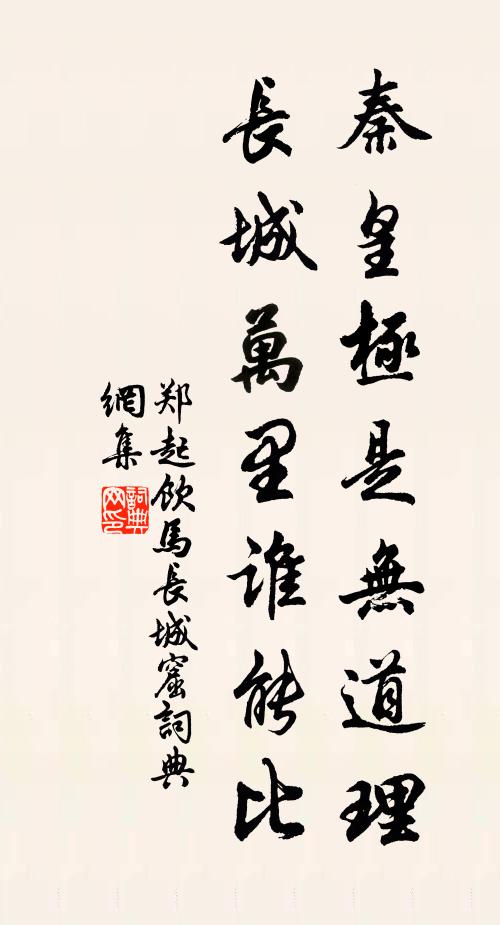 秦皇極是無道理
長城萬里誰能比
郑起飲馬長城窟詞典
網集
詞典
网印